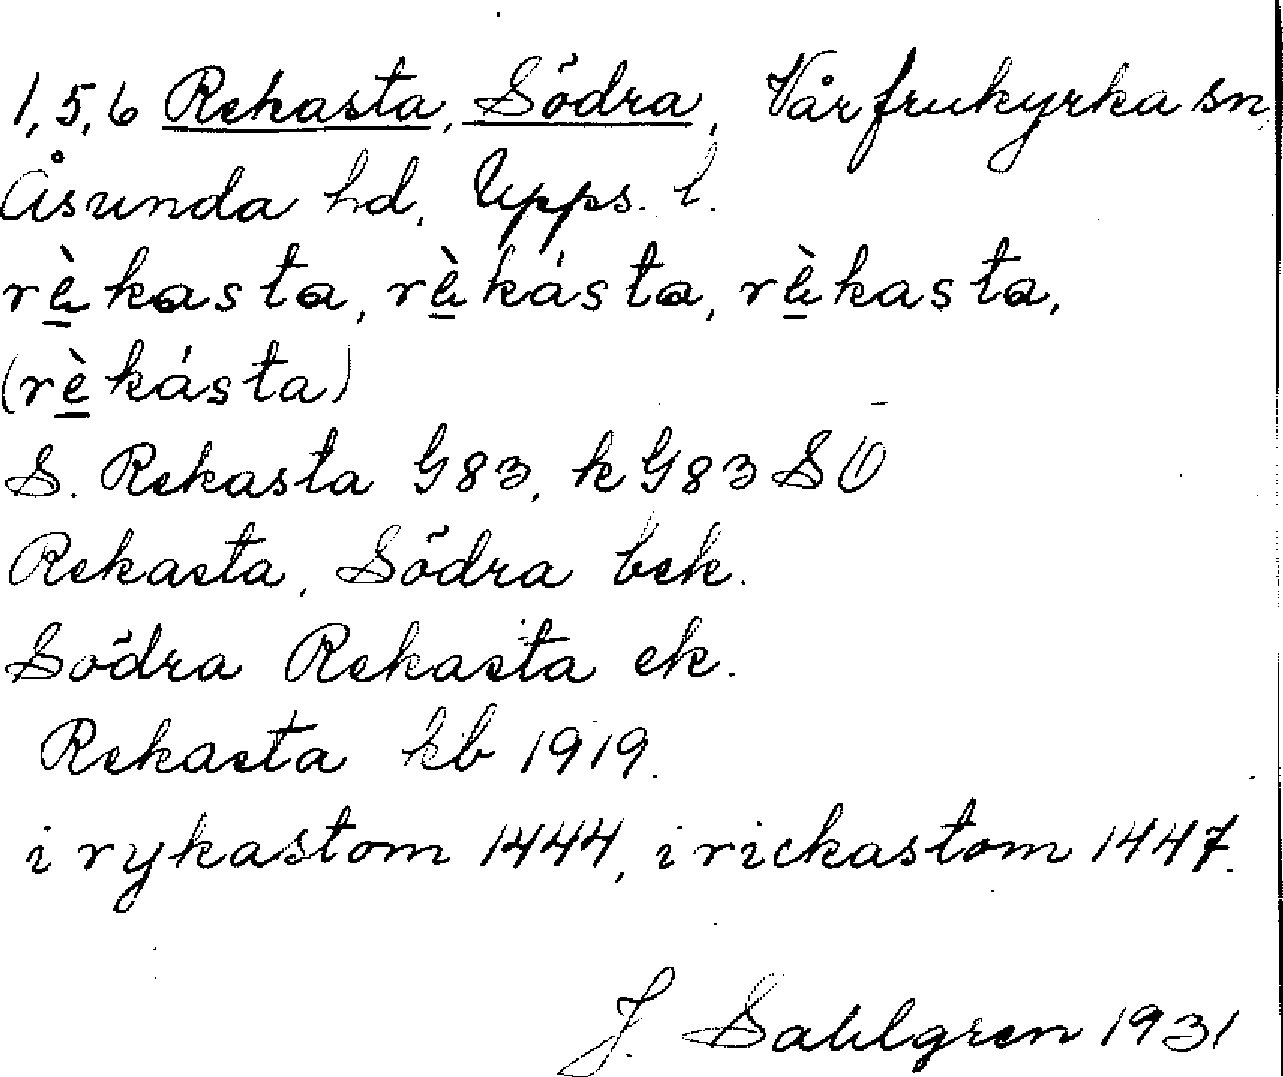 1,5,6 Rekasta, Södra, Vårfrukyrka sn,
Åsunda hd, Upps. l.
rè̱kasta, rè̱kásta, rè̱kasta,
(rè̱kásta)
S. Rekasta G83, k G83 SO
Rekasta, Södra bek.
Södra Rekasta ek.
Rekasta kb 1919.
i rykastom 1444, i rickastom 1447.
J. Sahlgren 1931